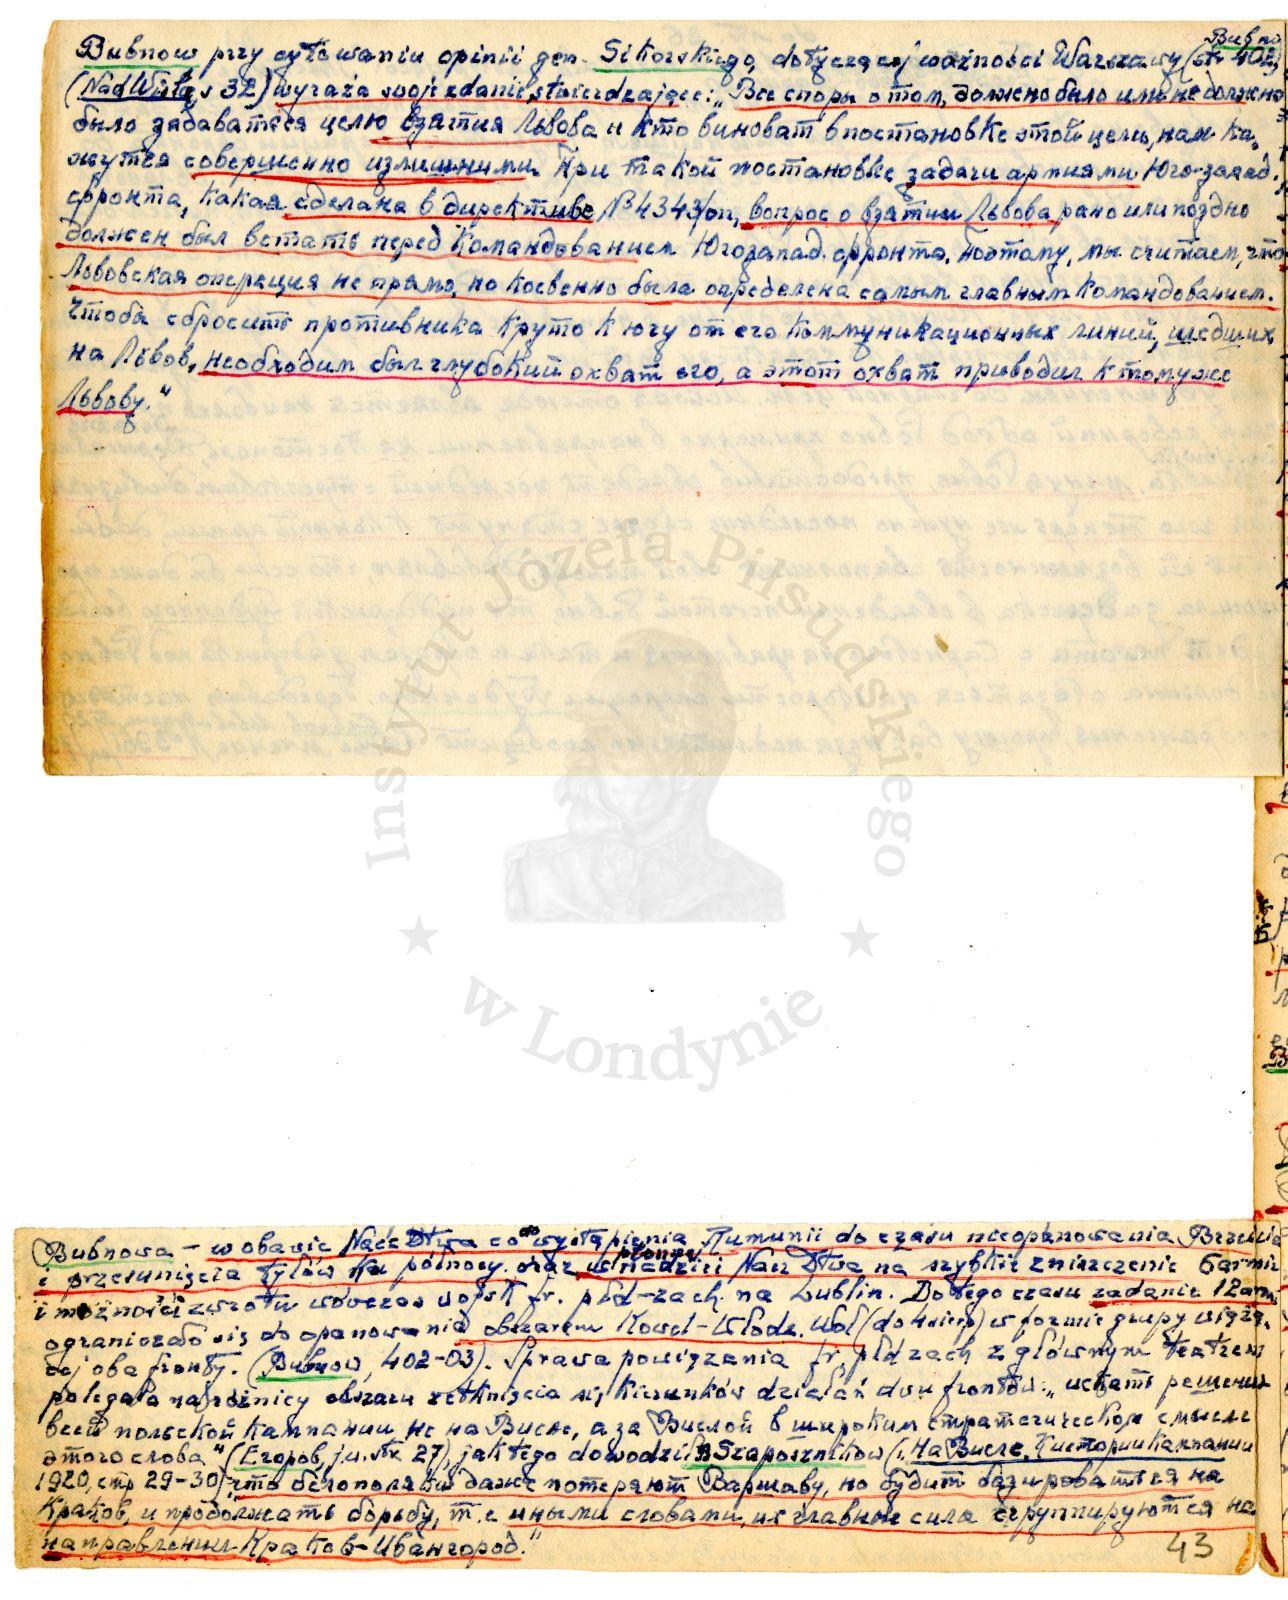 Bubnow
Bubnow przy cytowaniu opinii gen. Sikorskiego, dotyczącej ważności Warszawy (str 402,
(Nad Wisłą s 32) wyraża swoje zdanie, stwierdzające: „Все споры о том, должно было или не должно
было задаваться целю взятия Львова и кто виноват в постановке этой цели, нам ка-
жутся совершенно излишними. При такой постановке задачи армиями Юго-запад.
фронта, какая сделана в директиве №4343/оп, вопрос о взятии Львова рано или поздно
должен был встать перед командованием Югозапад. фронта. Поэтому, мы считаем, что
Львовская операция не прямо, но косвенно была определена самым главным командованием.
Чтобы сбросить противника круто к югу от его коммуникационных линий, шедших
на Львов, необходим был глубокий охват его, а этот охват приводил к тому же
Львову."
Instytut Józefa Piłsudskiego
w Londynie
Bubnowa – w obawie Nacz Dtwa co do wystąpienia Rumunii do czasu nieopanowania Brześcia
i przesunięcia tyłów na północy. oraz w płonnej nadziei Nacz Dtwa na szybkie zniszczenie 6 armii
i możności zwrotu wówczas wojsk fr. płd-zach. na Lublin. Do tego czasu zadanie 12 arm
ograniczało się do opanowania obszarem Kowel-Włodz. Woł (do 4 sierp) w formie grupy wiążą-
cej oba fronty. (Bubnow, 402-03). Sprawa powiązania fr. płd zach z głównym teatrem
polegała na różnicy obszaru zetknięcia się kierunków działań dwu frontów: „искать решения
всей польской кампании не на Висле, а за Вислой в широком стратегическом смысле
этого слова" (Егоров, j.w. str 27), jak tego dowodził B Szaposznikow („На Висле. К истории кампании
1920, стр 29-30): что белополяки даже потеряют Варшаву, но будут базироваться на
Краков, и продолжать борьбу, т.е иными словами, их главные сила сгруппируются на
направлении Краков-Ивангород."
43